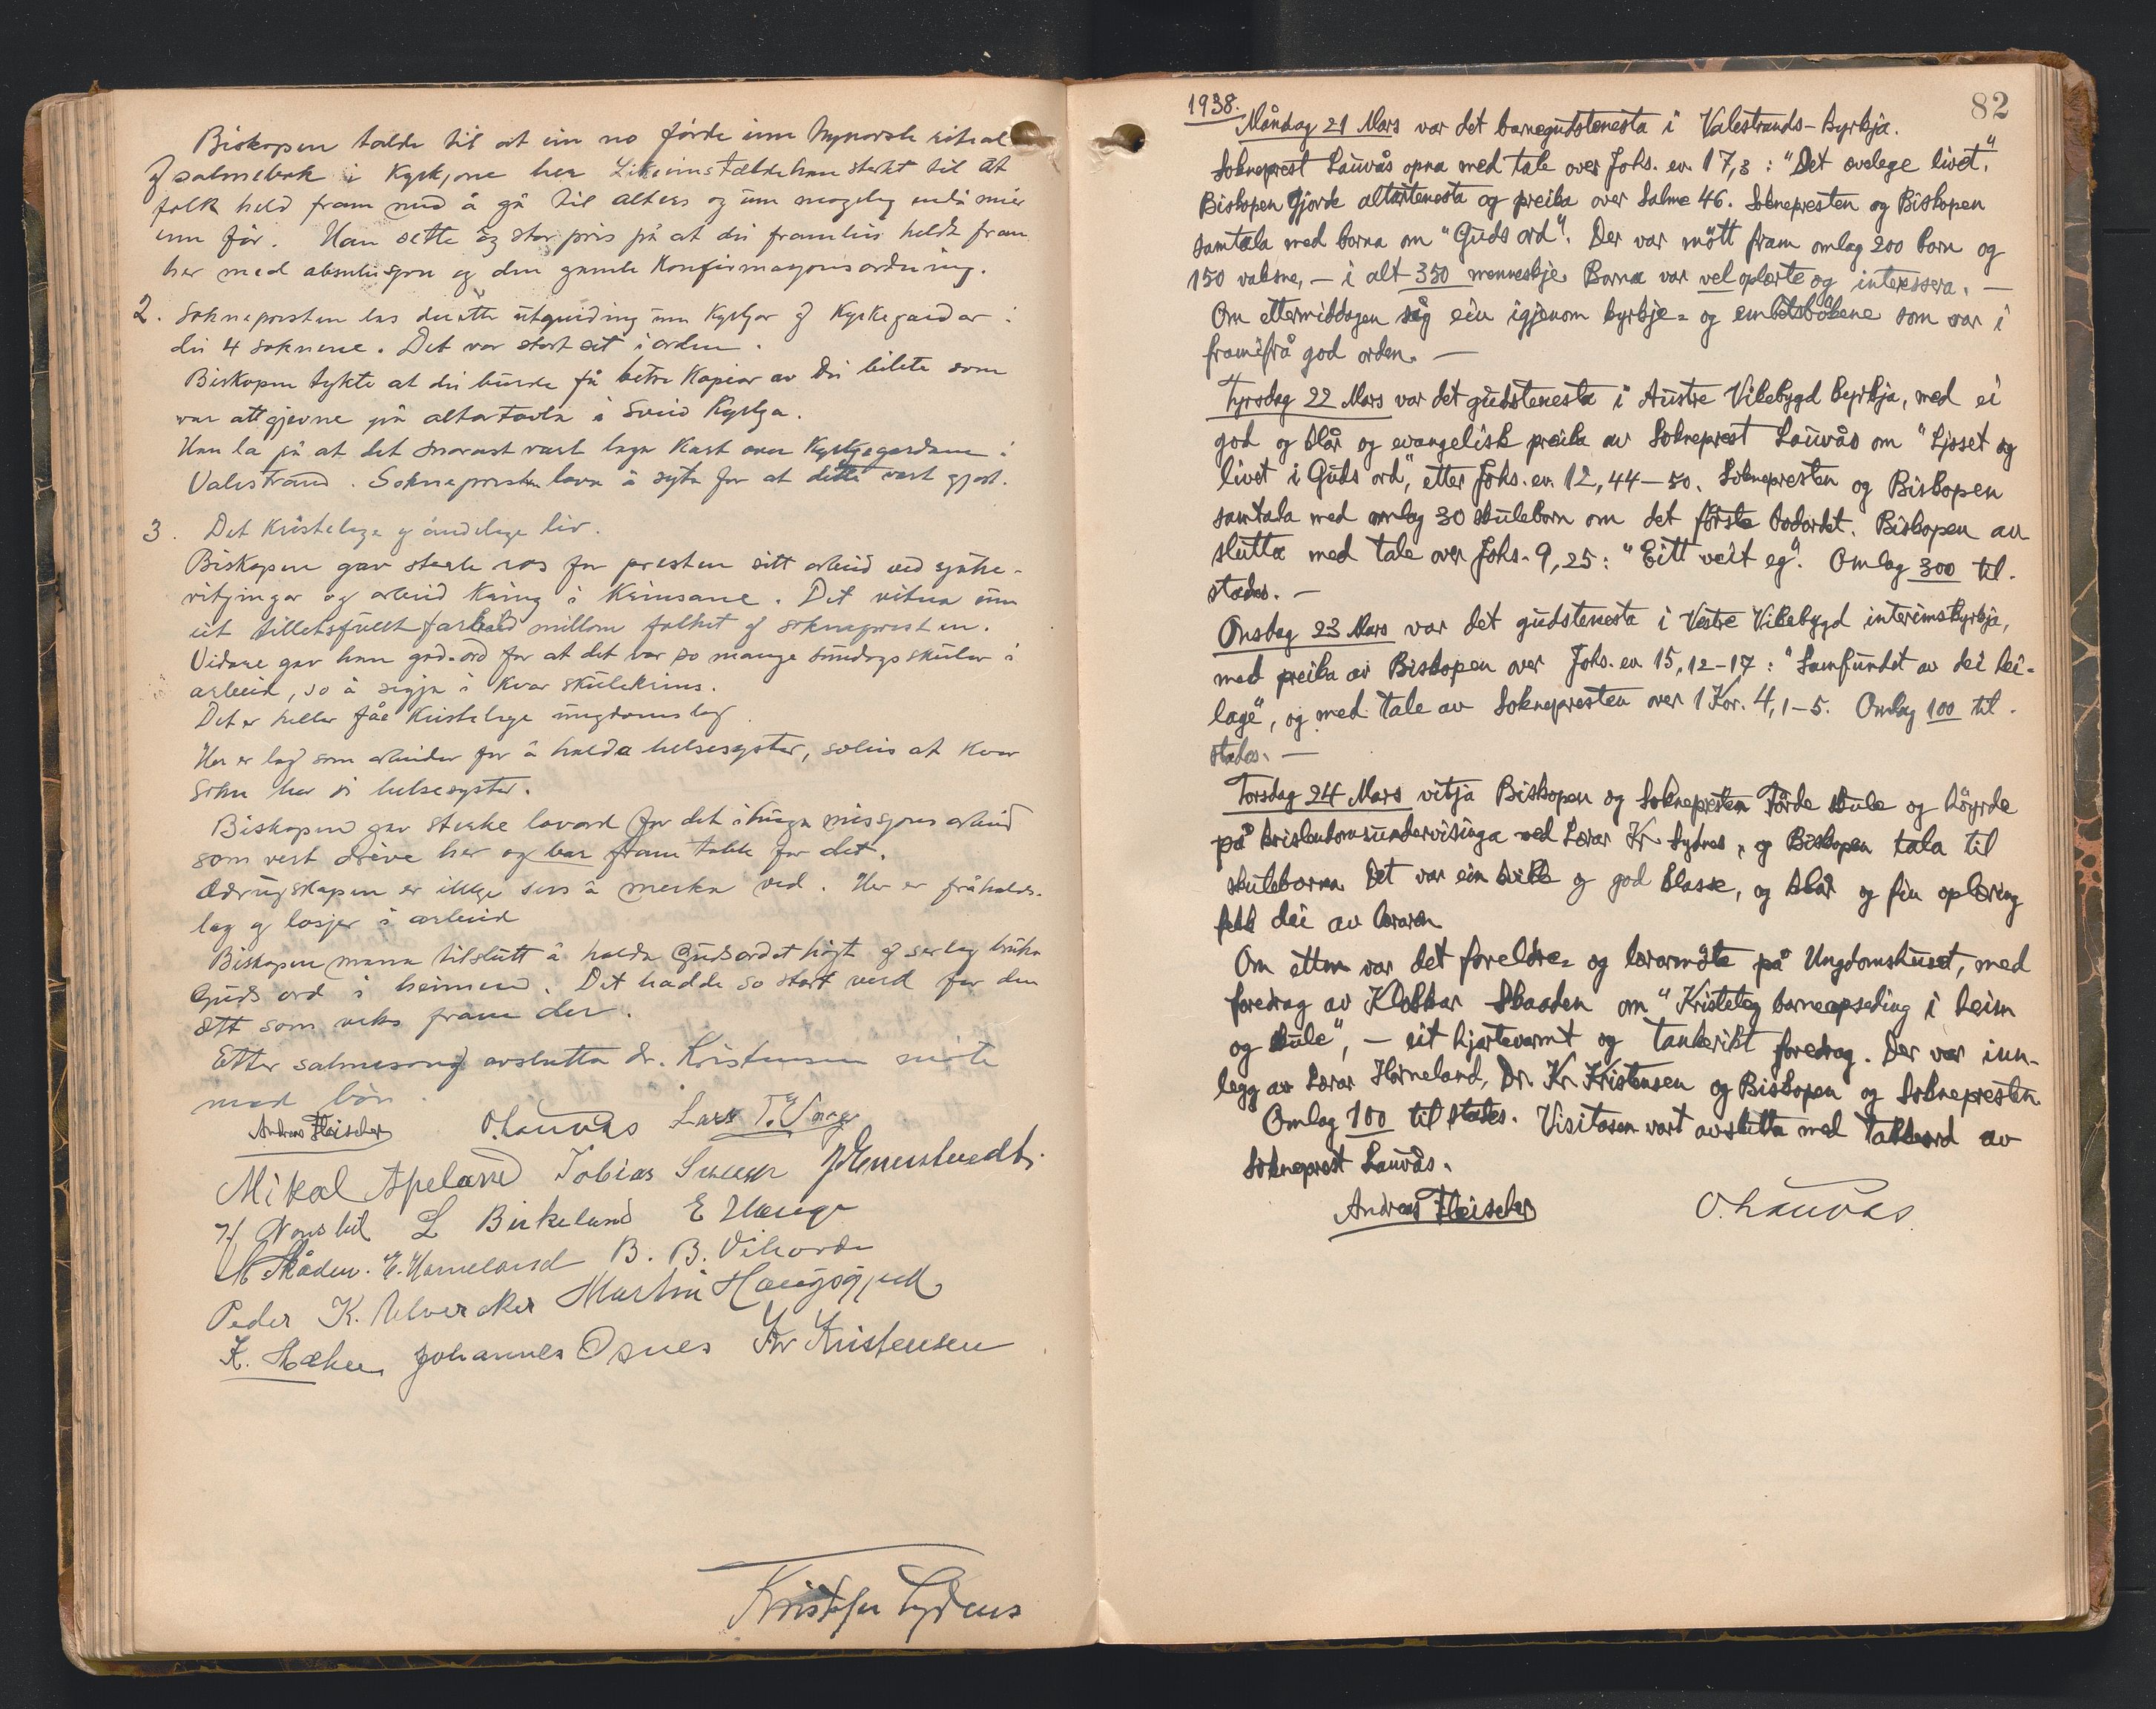 Biskopen talde til at ein no förde inn Nynorsk ritual
og salmebok i Kyrkjone her Likeeins talde han sterkt til at
folk held fram med å gå til alters og um mogeleg endå meir
enn för. Han sette og stor pris på at dei framleis heldt fram
her med absolusjon og den gamle Konfirmasjonsordning.
2. Soknepresten las deretter utgreiding um Kyrkjor og Kyrkjegardar i
dei 4 soknene. Det var stort set i orden.
Biskopen tykte at dei burde få betre Kopiar av dei bilete som
var attgjevne på altartavla i Sveio Kyrkja.
Han la på at det snarast vart laga Kart over Kyrkjegardane i
Valestrand. Soknepresten lova å syta for at dette vart gjort.
3. Det Kristelege og åndelege liv.
Biskopen gav sterk ros for presten sitt arbeid ved sjuke-
vitjingar og arbeid Kring i Krinsane. Det vitna um
eit tillitsfullt forhold millom folket og soknepresten.
Vidare gav han god-ord for at det var so mange sundagsskular i
arbeid, so å segja i Kvar skulekrins.
Det er heller fåe Kristelege ungdomslag.
Her er lag som arbeider for å halda helsesyster, soleis at Kvar
Sokn her ei helsesyster.
Biskopen gav sterke lovord for det ihuga misjonsarbeid
som vert dreve her og bar fram takk for det.
Ædrugskapen er ikkje svis å merka ved. Her er fråhalds-
lag og losjer i arbeid
Biskopen mana tilslutt å halda Gudsordet högt og serleg bruka
Guds ord i heimen. Det hadde so stort verd for den
ætt som veks fram der.
Etter salmesong avslutta dr. Kristensen möte
med bön.
Andreas Fleischer O. Lauvås Lars T. Vaage
Mikal Apeland Tobias
L Birkeland E Hauge
M Skåden. E. Horneland B. B. Vihovde
Peder K. Ulveraker Martin Haugsgjerd
K. Johannes Osnes Kr Kristensen
Kristofer Sydnes
82
1938.
Måndag 21 Mars var det barnegudstenesta i Valestrands-kyrkja.
Sokneprest Lauvås opna med tale over Johs. ev. 17,3: "Det ævelege livet."
Biskopen gjorde altartenesta og preika over Salme 46. Soknepresten og Biskopen
samtala med borna om "Guds ord". Der var mött fram omlag 200 born og
150 vaksne, – i alt 350 menneskje. Borna var vel oplærte og interessera. –
Om ettermiddagen såg ein igjenom kyrkje- og embetsbökene som var i
framifrå god orden. –
Tyrsdag 22 Mars var det gudstenesta i Austre Vikebygd kyrkja, med ei
god og klår og evangelisk preika av Sokneprest Lauvås om "Ljoset og
livet i Guds ord", etter Johs. ev. 12,44–50. Soknepresten og Biskopen
samtala med omlag 30 skuleborn om det förste bodordet. Biskopen av
slutta med tale over Johs. 9,25: "Eitt veit eg". Omlag 300 til-
stades. –
Onsdag 23 Mars var det gudstenesta i Vestre Vikebygd interimskyrkja,
med preika av Biskopen over Johs. ev. 15,12–17: "Samfundet av dei hei-
lage", og med tale av Soknepresten over 1 Kor. 4,1–5. Omlag 100 til-
stades. –
Torsdag 24 Mars vitja Biskopen og Soknepresten Förde skule og höyrde
på kristendomsundervisinga ved Lærar Kr. Sydnes, og Biskopen tala til
skuleborna. Det var ein kvikk og god klasse, og klår og fin oplæring
fekk dei av læraren
Om ettm var det foreldre- og lærarmöte på Ungdomshuset, med
foredrag av Klokkar Skaaden om "Kristeleg barneopseding i heim
og skule", – eit hjartevarmt og tankerikt foredrag. Der var inn-
legg av Lærar Horneland, Dr. Kr. Kristensen og Biskopen og Soknepresten.
Omlag 100 til stades. Visitasen vart avslutta med takkeord av
Sokneprest Lauvås.
Andreas Fleischer O. Lauvås.